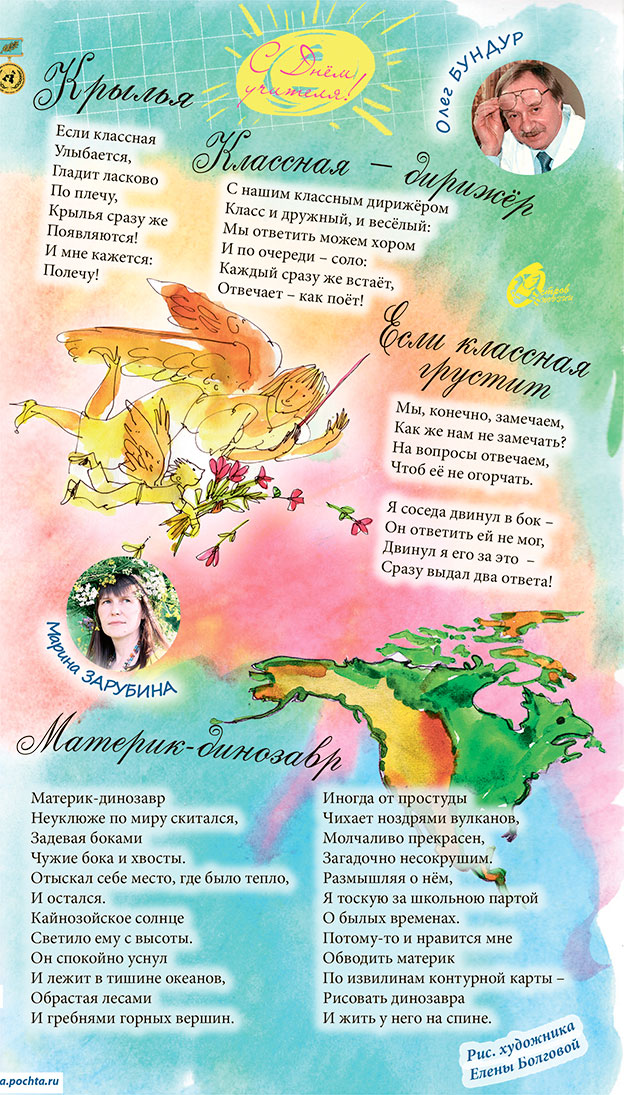 С Днём
учителя!
Крылья
Если классная
Улыбается,
Гладит ласково
По плечу,
Крылья сразу же
Появляются!
И мне кажется:
Полечу!
Олег БУНДУР
Классная – дирижёр
С нашим классным дирижёром
Класс и дружный, и весёлый:
Мы ответить можем хором
И по очереди – соло:
Каждый сразу же встаёт,
Отвечает – как поёт!
Если классная
грустит
Мы, конечно, замечаем,
Как же нам не замечать?
На вопросы отвечаем,
Чтоб её не огорчать.
Я соседа двинул в бок –
Он ответить ей не мог,
Двинул я его за это –
Сразу выдал два ответа!
Марина ЗАРУБИНА
Материк-динозавр
Материк-динозавр
Неуклюже по миру скитался,
Задевая боками
Чужие бока и хвосты.
Отыскал себе место, где было тепло,
И остался.
Кайнозойское солнце
Светило ему с высоты.
Он спокойно уснул
И лежит в тишине океанов,
Обрастая лесами
И гребнями горных вершин.
Иногда от простуды
Чихает ноздрями вулканов,
Молчаливо прекрасен,
Загадочно несокрушим.
Размышляя о нём,
Я тоскую за школьною партой
О былых временах.
Потому-то и нравится мне
Обводить материк
По извилинам контурной карты –
Рисовать динозавра
И жить у него на спине.
Рис. художника
Елены Болговой
a.pochta.ru